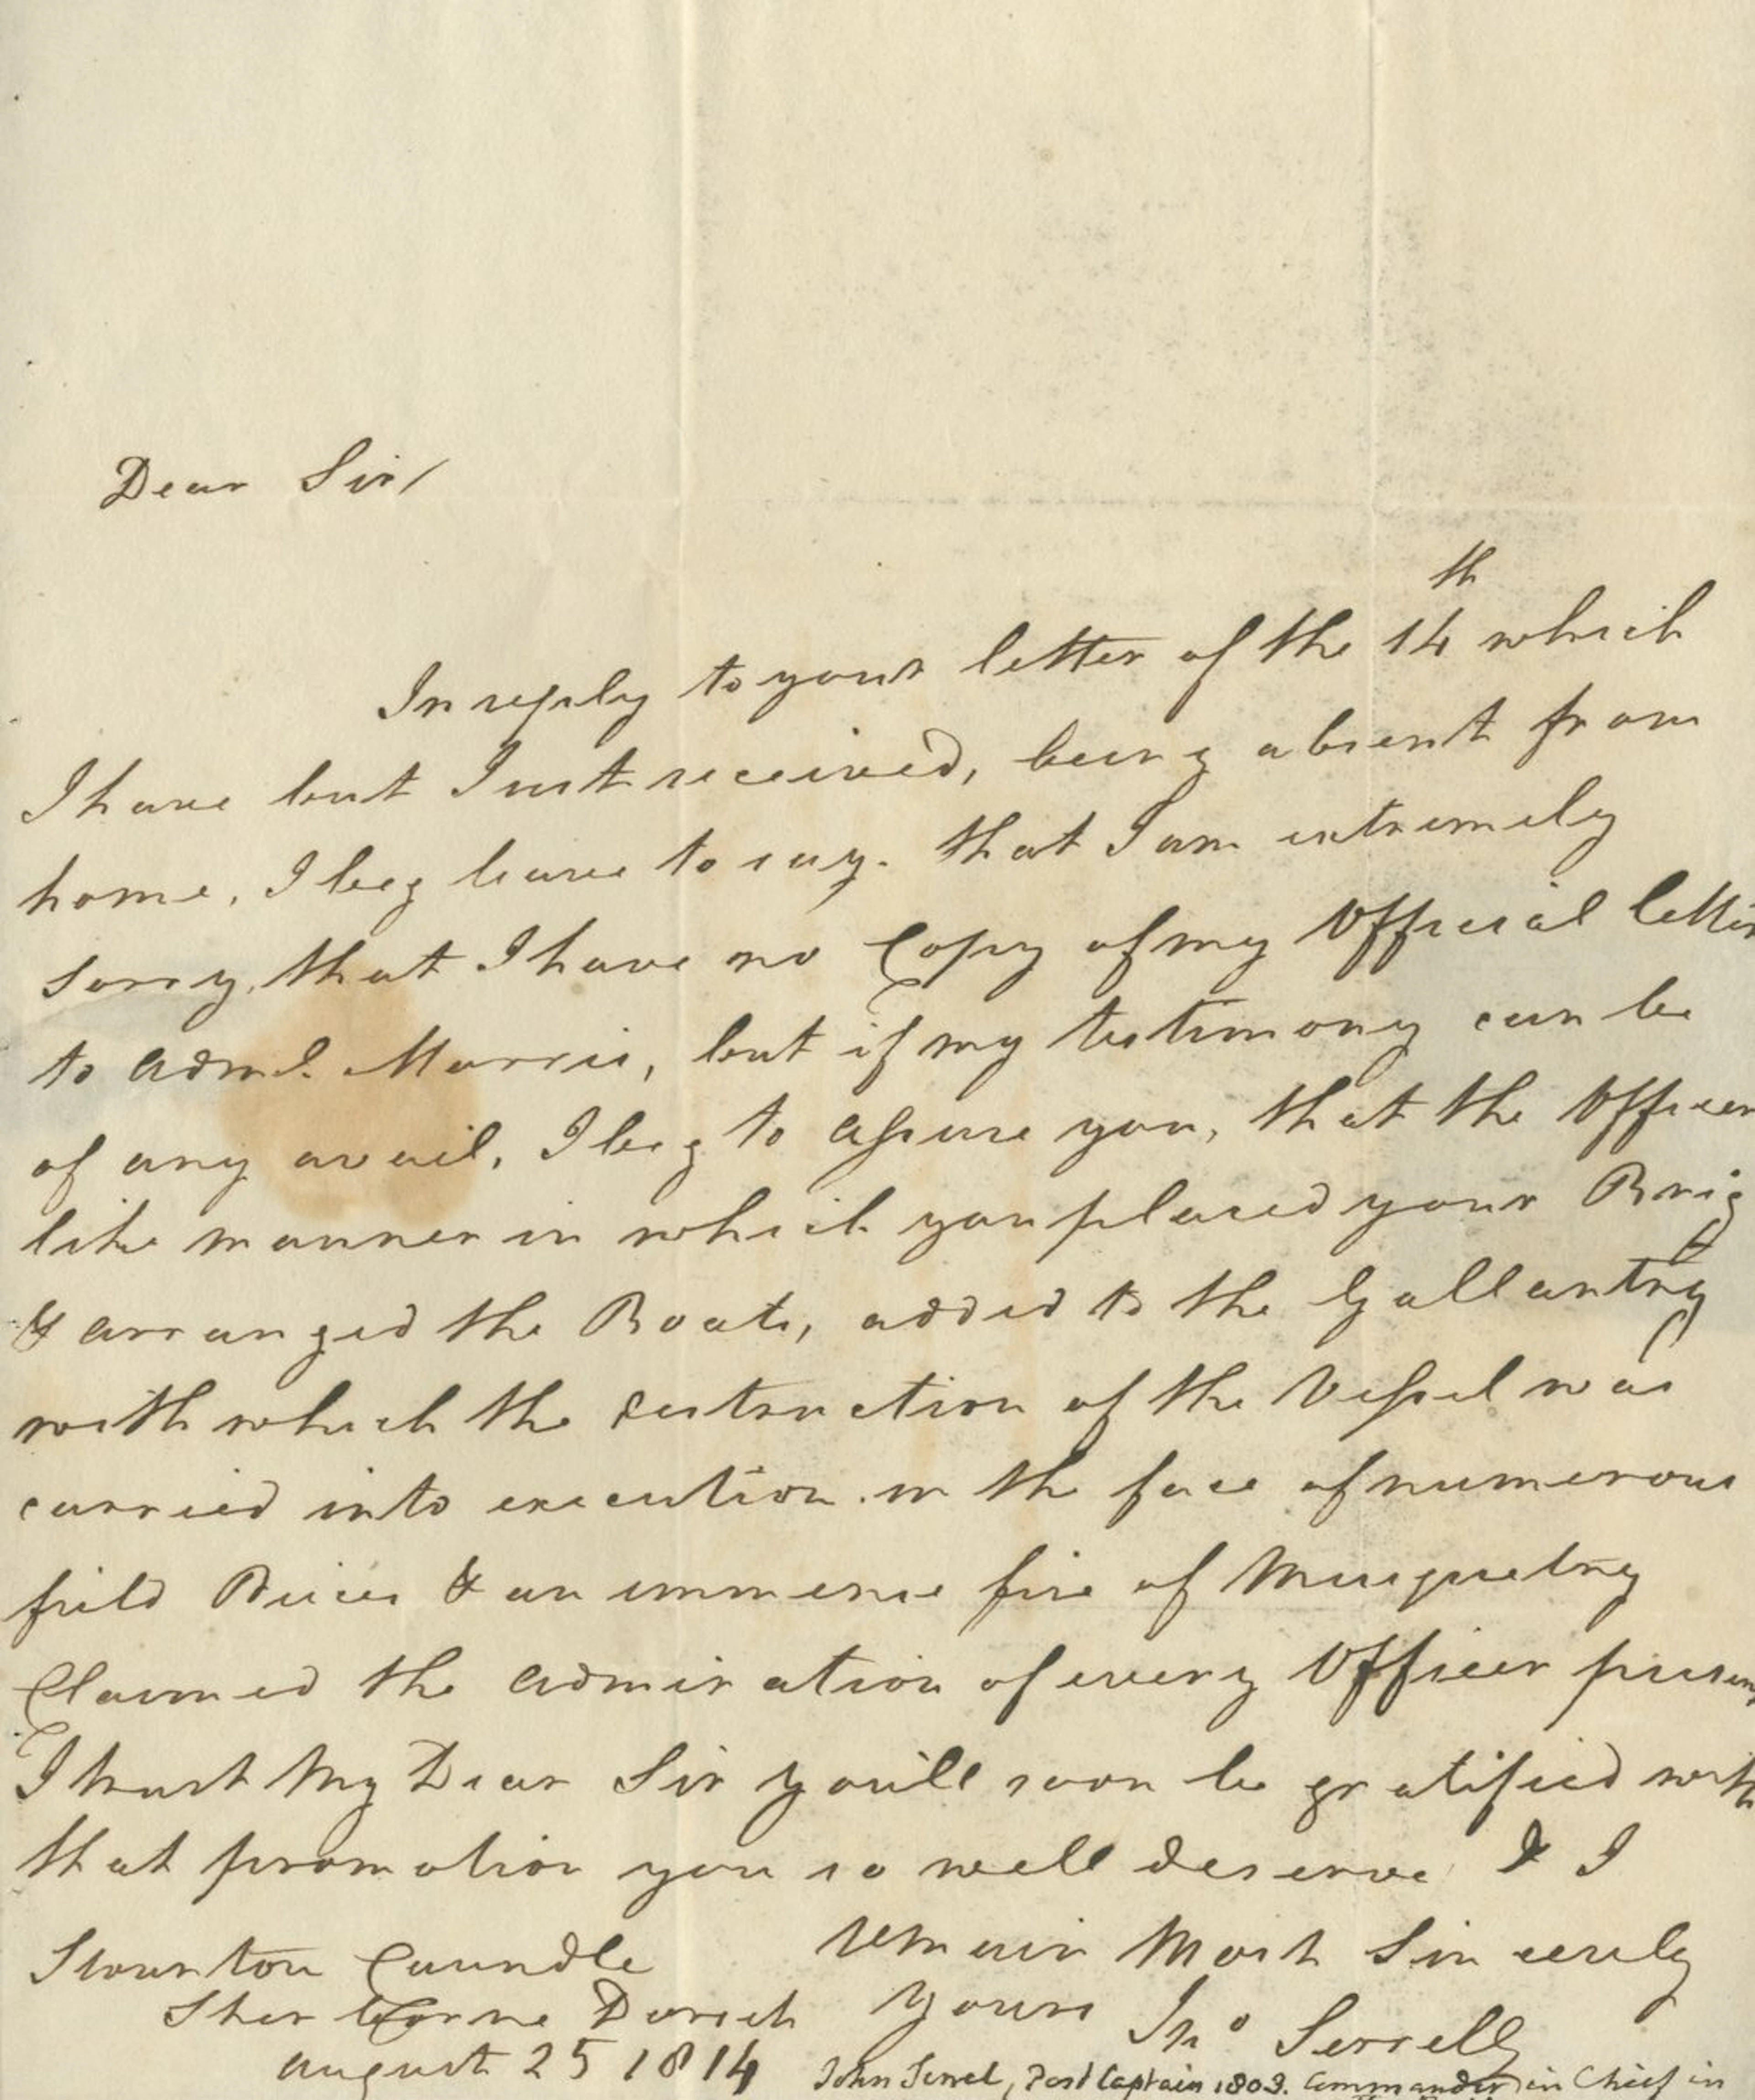 Dear Sir/
th
In reply to your letter of the 14 which
I have but Just received, being absent from
home, I beg leave to say. that I am extremely
sorry, that I have no Copy of my Official letter
to Adml. Morris, but if my testimony can be
of any avail, I beg to assure you, that the Officer
like manner in which you placed your Brig
& arranged the Boats, added to the Gallantry
with which the destruction of the Vessel was
carried into execution in the face of numerous
field Peices & an immense fire of Musquetry
Claimed the admiration of every Officer present
I trust My Dear Sir you'll soon be gratified with
that promotion you so well deserve & I
remain Most Sincerely
Stourton Caundle
Yours Jno Serrell
Sherborne Dorset
August 25 1814
John Serrel, Post Captain 1803. Commander in Chief in